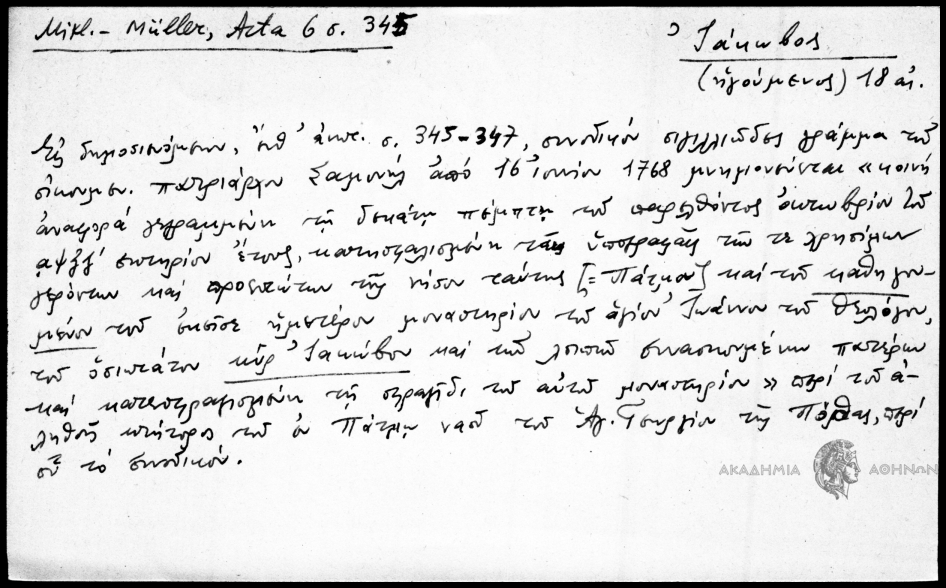 Mikl. - Müller, Acta 6 σ. 345
Ἰάκωβος
(ἡγούμενος) 18 αἰ.
Εἰς δημοσιευόμενον, ἔνθ' ἀνωτ. σ. 345-347, συνοδικόν σιγιλλιῶδες γράμμα τοῦ
οἰκουμεν. πατριάρχου Σαμουήλ ἀπό 16 ἰουνίου 1768 μνημονεύεται «κοινή
ἀναφορά γεγραμμένη τῇ δεκάτῃ πέμπτῃ τοῦ παρελθόντος ὀκτωβρίου τοῦ
αψξζ' σωτηρίου ἔτους, κατησφαλισμένη ταῖς ὑπογραφαῖς τῶν τε χρησίμων
γερόντων καί προεστώτων τῆς νήσου ταύτης [= Πάτμου] καί τοῦ καθηγου-
μένου τοῦ ἐκεῖσε ἡμετέρου μοναστηρίου τοῦ ἁγίου Ἰωάννου τοῦ Θεολόγου,
τοῦ ὁσιωτάτου κύρ Ἰακώβου καί τῶν λοιπῶν συνασκουμένων πατέρων
καί κατεσφραγισμένη τῇ σφραγῖδι τοῦ αὐτοῦ μοναστηρίου» περί τοῦ ἀ-
ληθοῦς κτήτορος τοῦ ἐν Πάτμῳ ναοῦ τοῦ Ἁγ. Γεωργίου τῆς Πόρτας, περί
οὗ τό συνοδικόν.
ΑΚΑΔΗΜΙΑ ΑΘΗΝΩΝ